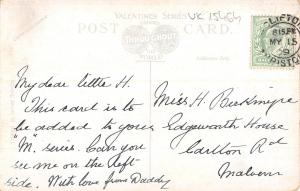 VALENTINES SERIES
UK 15464
POST CARD.
FAMOUS
THROUGHOUT
THE
WORLD
CLIFTON
8.15 PM
MY 15
BRISTOL
My dear little H.
This card is to
be added to your
"M" series. Can you
see me on the left
side. With love from Daddy
Miss H. Beckmyre
Edgeworth House
Carlton Rd
Malvern